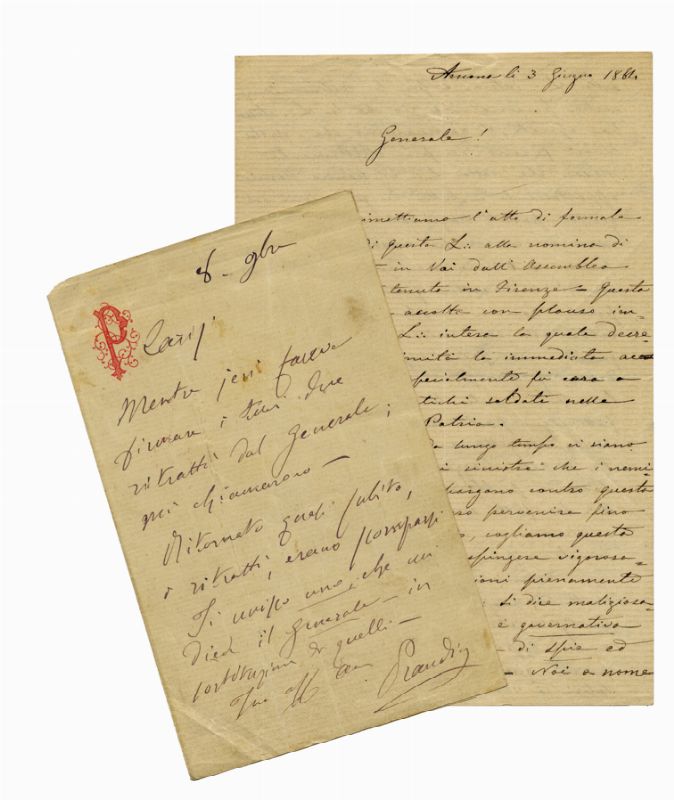 Ancona li 3 Giugno 1861.
Generale!
mettiamo l'atto di formale
di questa L.: alla nomina di
in Voi dall'Assemblea
tenuta in Firenze. Questa
accolta con plauso im-
L.: intesa la quale decre-
unità la immediata
specialmente fù cara a
soldati nella
Patria.
Da lungo tempo vi siano
sinistra che i nemi-
spargono contro questa
pervenire fino
, cogliamo questa
spingere vigorosa-
pienamente
si dice maligiosa-
è governativa
di spie ed
Noi a nome
8. 9bre
P
Carij.
Mentre jeri faceva
firmare i tuoi due
ritratti dal Generale;
mi chiamarono —
Ritornato quasi subito,
i ritratti, erano scomparsi
Ti unisco uno, che mi
diede il Generale in
sostituzione di quelli —
Tuo aff